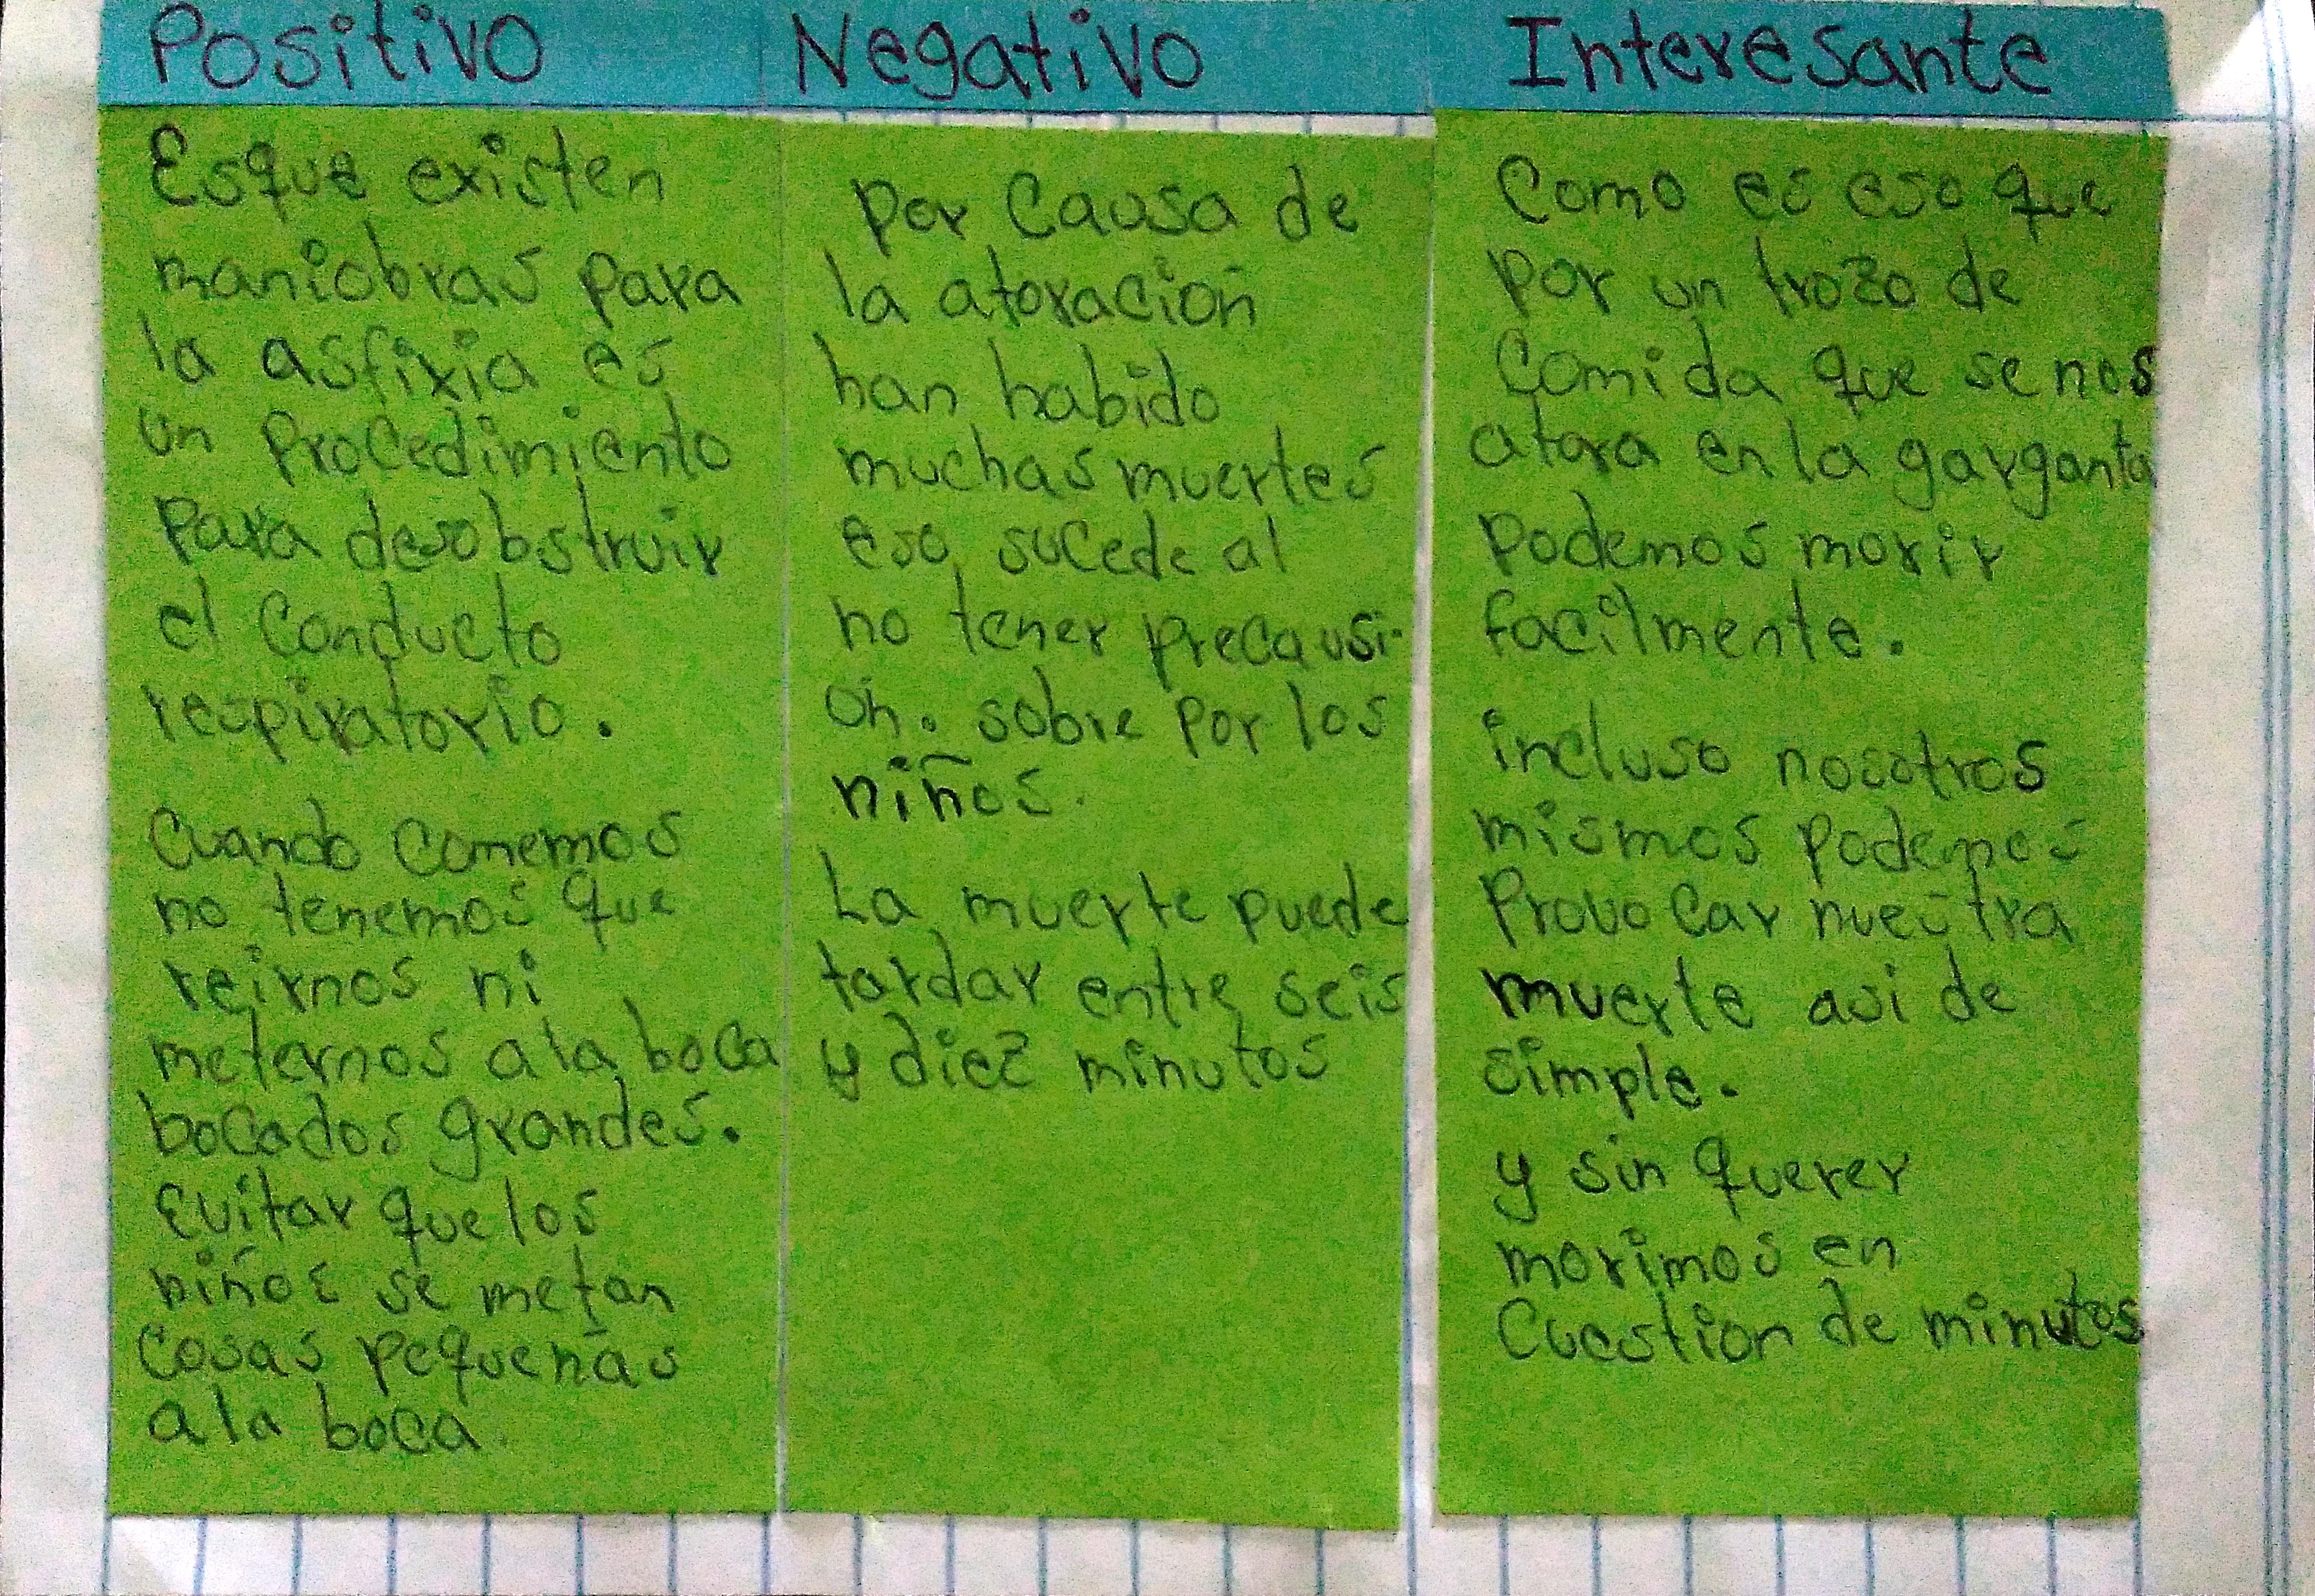 Positivo
Esque existen
maniobras para
la asfixia es
un Procedimiento
Para desobstruir
el Conducto
respiratorio.
Cuando comemos
no tenemos que
reirnos ni
meternos a la boca
bocados grandes.
Evitar que los
niños se metan
Cosas pequeñas
a la boca.
Negativo
Por Causa de
la atoración
han habido
muchas muertes
eso sucede al
no tener precausi-
ón. sobre por los
niños.
La muerte puede
tardar entre seis
y diez minutos
Interesante
Como es eso que
por un trozo de
Comida que se nos
atora en la garganta
Podemos morir
facilmente.
incluso nosotros
mismos podemos
Provocar nuestra
muerte asi de
simple.
y sin querer
morimos en
Cuestion de minutos